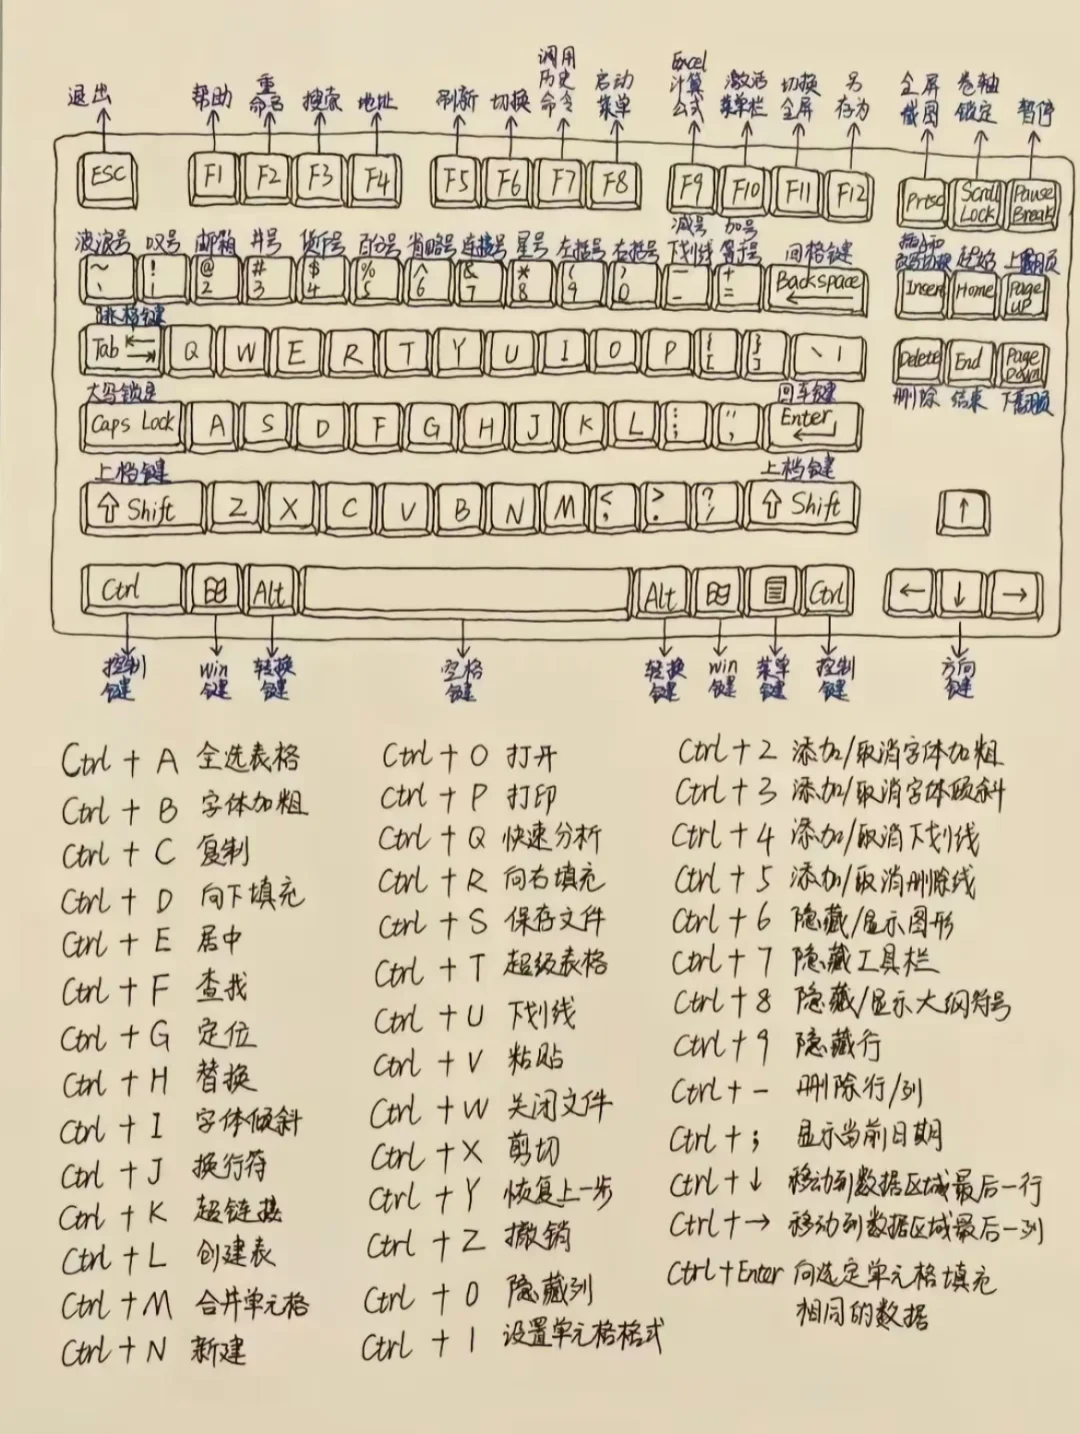 退出 帮助 重命名 搜索 地址 刷新 切换 调用历史命令 启动菜单 Excel计算公式 激活菜单栏 切换全屏 另存为 全屏截图 卷轴锁定 暂停
ESC F1 F2 F3 F4 F5 F6 F7 F8 F9 F10 F11 F12 Prtsc Scroll Lock Pause Break
波浪号 叹号 邮箱 井号 货币号 百分号 省略号 连接号 星号 左括号 右括号 减号下划线 加号等于号 回格键 起始 上翻页
~ ! @ # $ % ^ & * ( ) — + Backspace Insert Home Page UP
、 1 2 3 4 5 6 7 8 9 0 - =
跳格键
Tab Q W E R T Y U I O P { [ } ] \ | Delete End Page Down
大写锁定 回车键 删除 结束 下翻页
Caps Lock A S D F G H J K L : ; " ' Enter
上档键 上档键
⇧ Shift Z X C V B N M < , > . ? / ⇧ Shift ↑
Ctrl Alt Alt Ctrl ← ↓ →
控制键 win键 转换键 空格键 转换键 win键 菜单键 控制键 方向键
Ctrl + A 全选表格
Ctrl + B 字体加粗
Ctrl + C 复制
Ctrl + D 向下填充
Ctrl + E 居中
Ctrl + F 查找
Ctrl + G 定位
Ctrl + H 替换
Ctrl + I 字体倾斜
Ctrl + J 换行符
Ctrl + K 超链接
Ctrl + L 创建表
Ctrl + M 合并单元格
Ctrl + N 新建
Ctrl + O 打开
Ctrl + P 打印
Ctrl + Q 快速分析
Ctrl + R 向右填充
Ctrl + S 保存文件
Ctrl + T 超级表格
Ctrl + U 下划线
Ctrl + V 粘贴
Ctrl + W 关闭文件
Ctrl + X 剪切
Ctrl + Y 恢复上一步
Ctrl + Z 撤销
Ctrl + 0 隐藏列
Ctrl + 1 设置单元格格式
Ctrl + 2 添加/取消字体加粗
Ctrl + 3 添加/取消字体倾斜
Ctrl + 4 添加/取消下划线
Ctrl + 5 添加/取消删除线
Ctrl + 6 隐藏/显示图形
Ctrl + 7 隐藏工具栏
Ctrl + 8 隐藏/显示大纲符号
Ctrl + 9 隐藏行
Ctrl + - 删除行/列
Ctrl + ; 显示当前日期
Ctrl + ↓ 移动到数据区域最后一行
Ctrl + → 移动到数据区域最后一列
Ctrl + Enter 向选定单元格填充
相同的数据